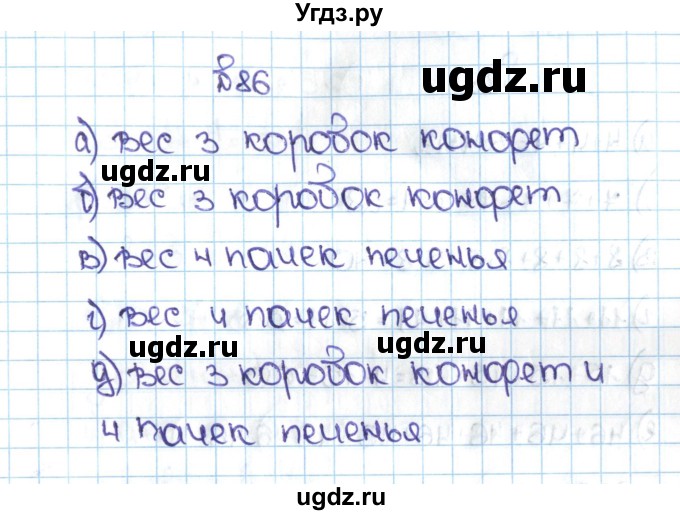 Угдз.ру
№86
ugdz.ru
а) вес 3 коробок конфет
ugdz.ru
б) вес 3 коробок конфет
в) вес 4 пачек печенья
г) вес 4 пачек печенья
ugdz.ru ugdz.ru
д) вес 3 коробок конфет и
4 пачек печенья
ugdz.ru